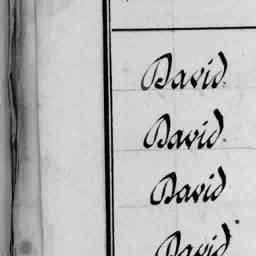 David.
David.
David
David